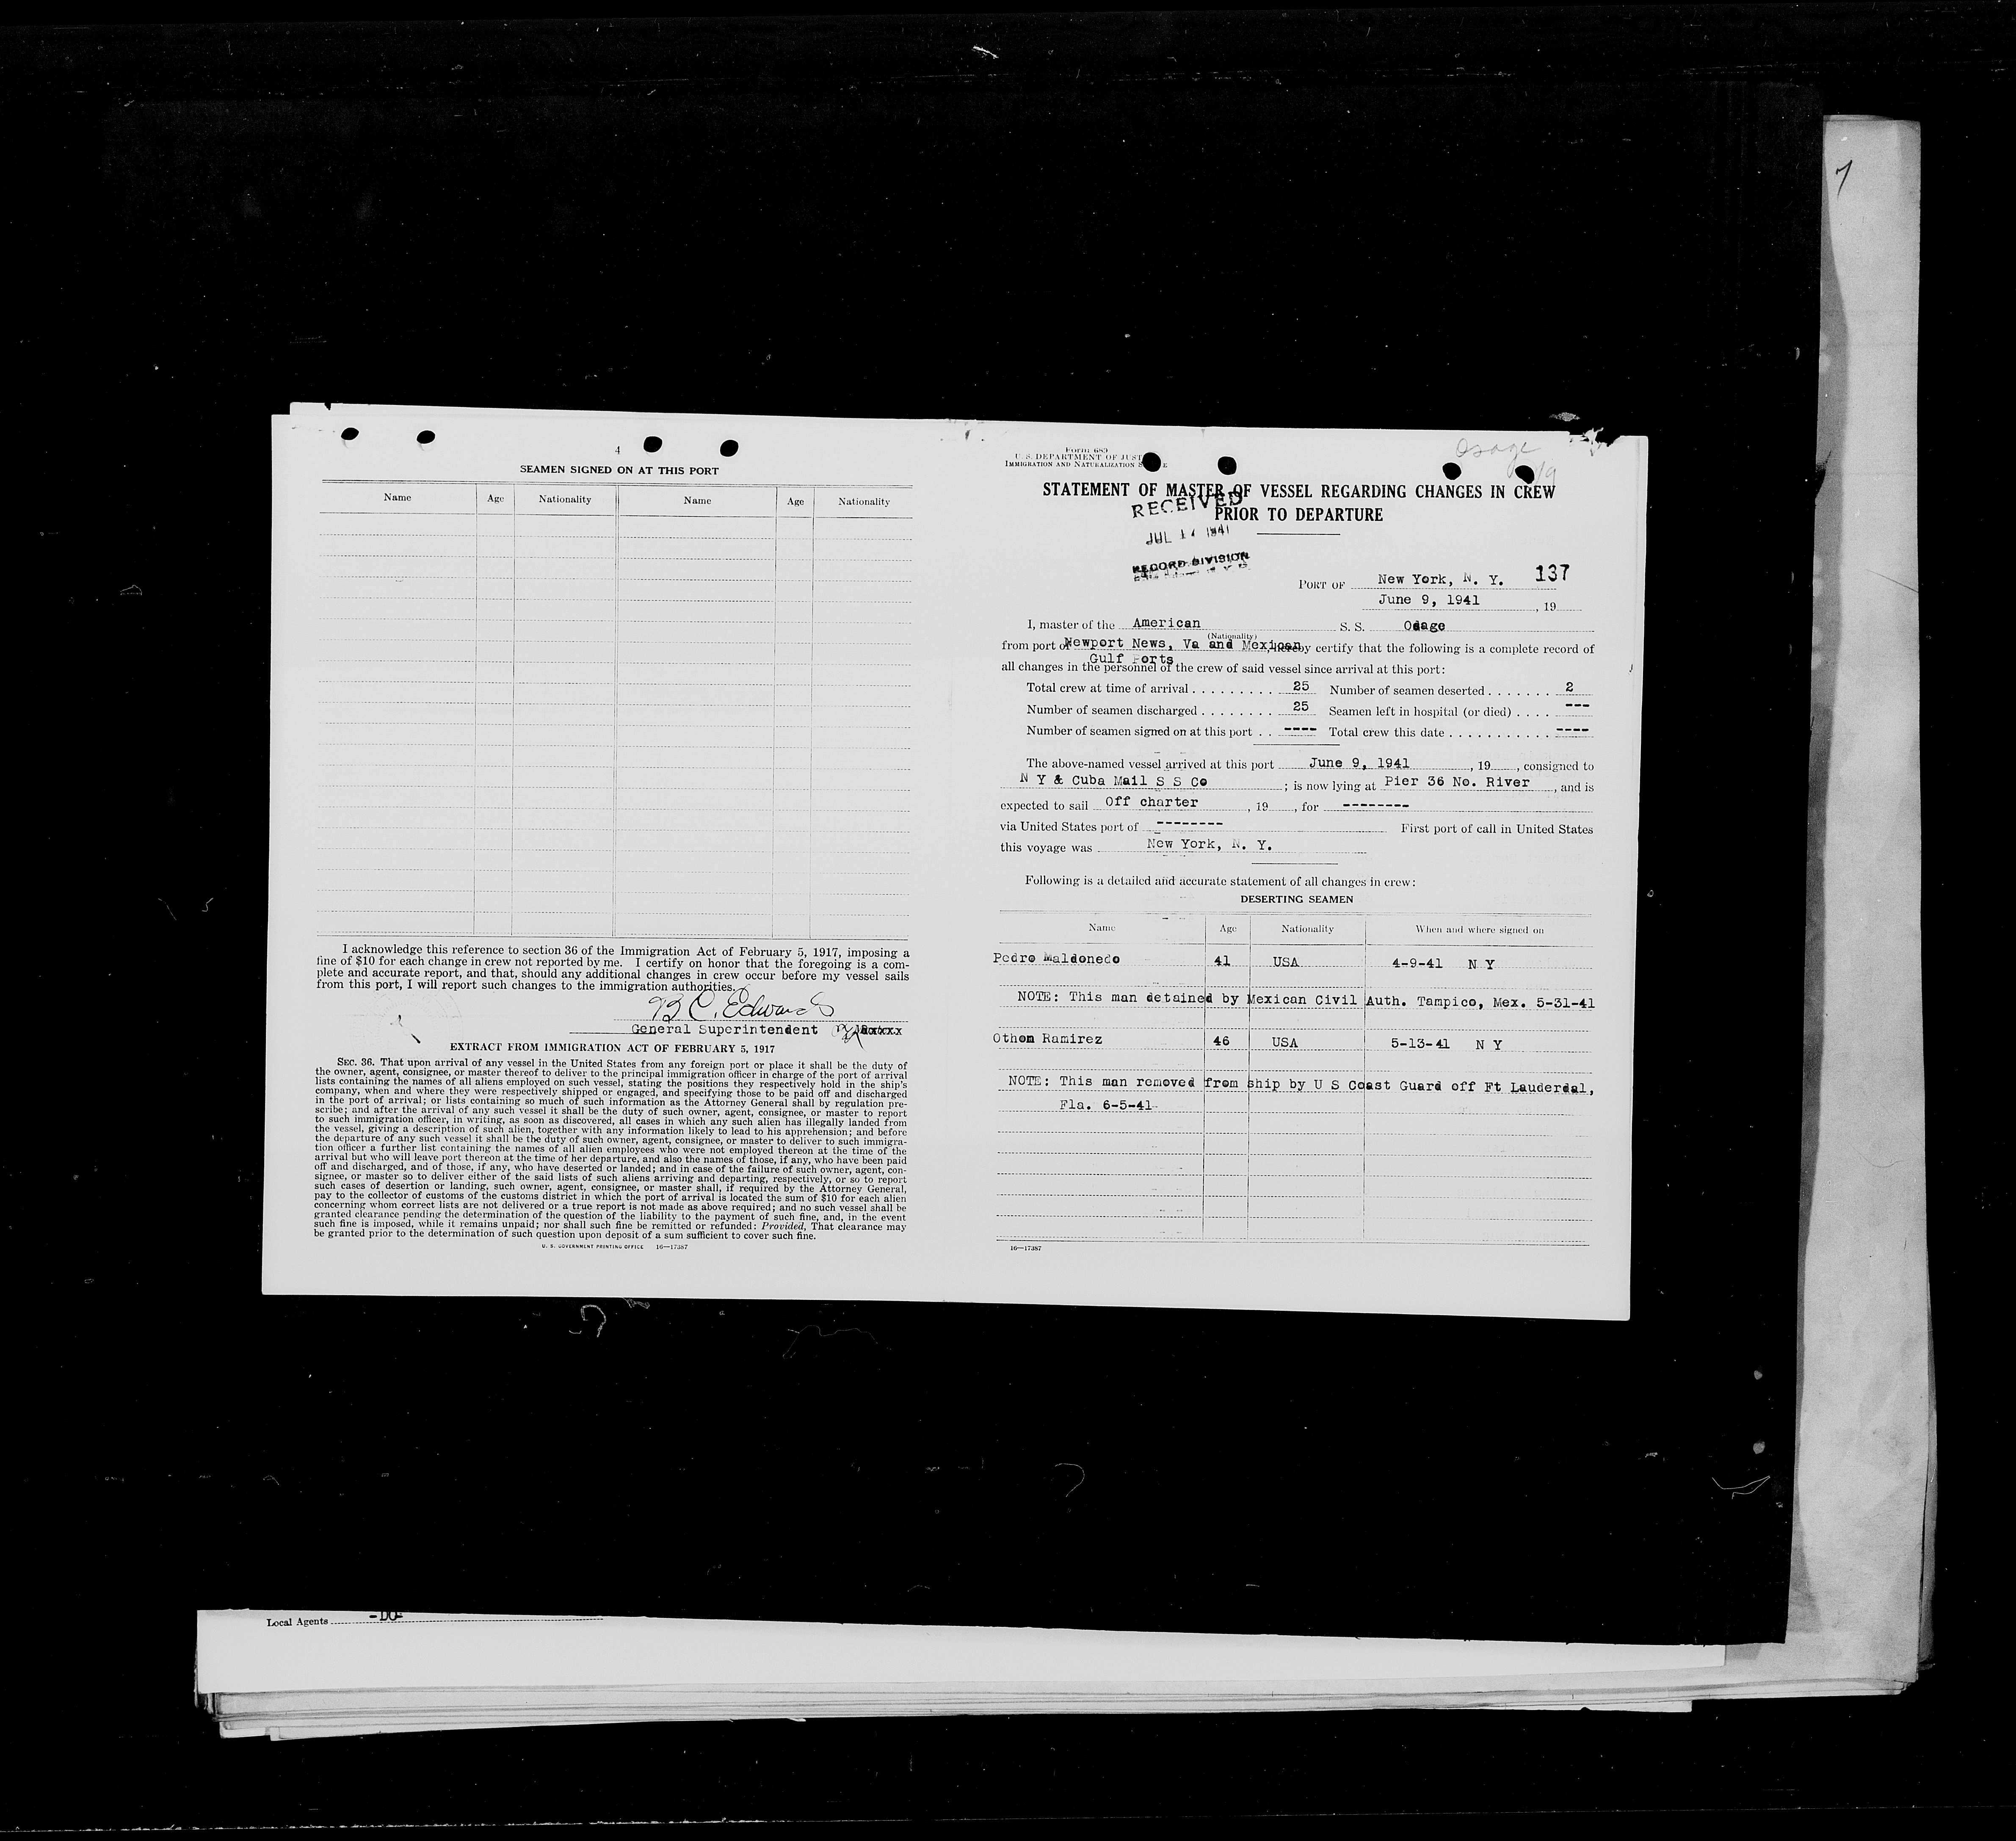 4
SEAMEN SIGNED ON AT THIS PORT
Name Age Nationality Name Age Nationality
I acknowledge this reference to section 36 of the Immigration Act of February 5, 1917, imposing a
fine of $10 for each change in crew not reported by me. I certify on honor that the foregoing is a com-
plete and accurate report, and that, should any additional changes in crew occur before my vessel sails
from this port, I will report such changes to the immigration authorities.
B C. Edwards
General Superintendent
EXTRACT FROM IMMIGRATION ACT OF FEBRUARY 5, 1917
SEC. 36. That upon arrival of any vessel in the United States from any foreign port or place it shall be the duty of
the owner, agent, consignee, or master thereof to deliver to the principal immigration officer in charge of the port of arrival
lists containing the names of all aliens employed on such vessel, stating the positions they respectively hold in the ship's
company, when and where they were respectively shipped or engaged, and specifying those to be paid off and discharged
in the port of arrival; or lists containing so much of such information as the Attorney General shall by regulation pre-
scribe; and after the arrival of any such vessel it shall be the duty of such owner, agent, consignee, or master to report
to such immigration officer, in writing, as soon as discovered, all cases in which any such alien has illegally landed from
the vessel, giving a description of such alien, together with any information likely to lead to his apprehension; and before
the departure of any such vessel it shall be the duty of such owner, agent, consignee, or master to deliver to such immigra-
tion officer a further list containing the names of all alien employees who were not employed thereon at the time of the
arrival but who will leave port thereon at the time of her departure, and also the names of those, if any, who have been paid
off and discharged, and of those, if any, who have deserted or landed; and in case of the failure of such owner, agent, con-
signee, or master so to deliver either of the said lists of such aliens arriving and departing, respectively, or so to report
such cases of desertion or landing, such owner, agent, consignee, or master shall, if required by the Attorney General,
pay to the collector of customs of the customs district in which the port of arrival is located the sum of $10 for each alien
concerning whom correct lists are not delivered or a true report is not made as above required; and no such vessel shall be
granted clearance pending the determination of the question of the liability to the payment of such fine, and, in the event
such fine is imposed, while it remains unpaid; nor shall such fine be remitted or refunded: Provided, That clearance may
be granted prior to the determination of such question upon deposit of a sum sufficient to cover such fine.
U. S. GOVERNMENT PRINTING OFFICE 16—17387
Form 689
U. S. DEPARTMENT OF JUST
IMMIGRATION AND NATURALIZATION S E
Osage
STATEMENT OF MASTER OF VESSEL REGARDING CHANGES IN CREW
PRIOR TO DEPARTURE
RECEIVED
JUL 17 1941
RECORD DIVISION
PORT OF New York, N. Y. 137
June 9, 1941 , 19
I, master of the American S. S. Osage
(Nationality)
from port of Newport News, Va and Mexican hereby certify that the following is a complete record of
Gulf Ports
all changes in the personnel of the crew of said vessel since arrival at this port:
Total crew at time of arrival . . . . . . . . . 25 Number of seamen deserted . . . . . . . 2
Number of seamen discharged . . . . . . . . 25 Seamen left in hospital (or died) . . . . ---
Number of seamen signed on at this port . . ---- Total crew this date . . . . . . . . . . . ----
The above-named vessel arrived at this port June 9, 1941 , 19 , consigned to
N Y & Cuba Mail S S Co ; is now lying at Pier 36 No. River , and is
expected to sail Off charter , 19 , for --------
via United States port of -------- First port of call in United States
this voyage was New York, N. Y.
Following is a detailed and accurate statement of all changes in crew:
DESERTING SEAMEN
Name Age Nationality When and where signed on
Pedro Maldonedo 41 USA 4-9-41 N Y
NOTE: This man detained by Mexican Civil Auth. Tampico, Mex. 5-31-41
Othon Ramirez 46 USA 5-13-41 N Y
NOTE: This man removed from ship by U S Coast Guard off Ft Lauderdal,
Fla. 6-5-41
16—17387
Local Agents -DO-